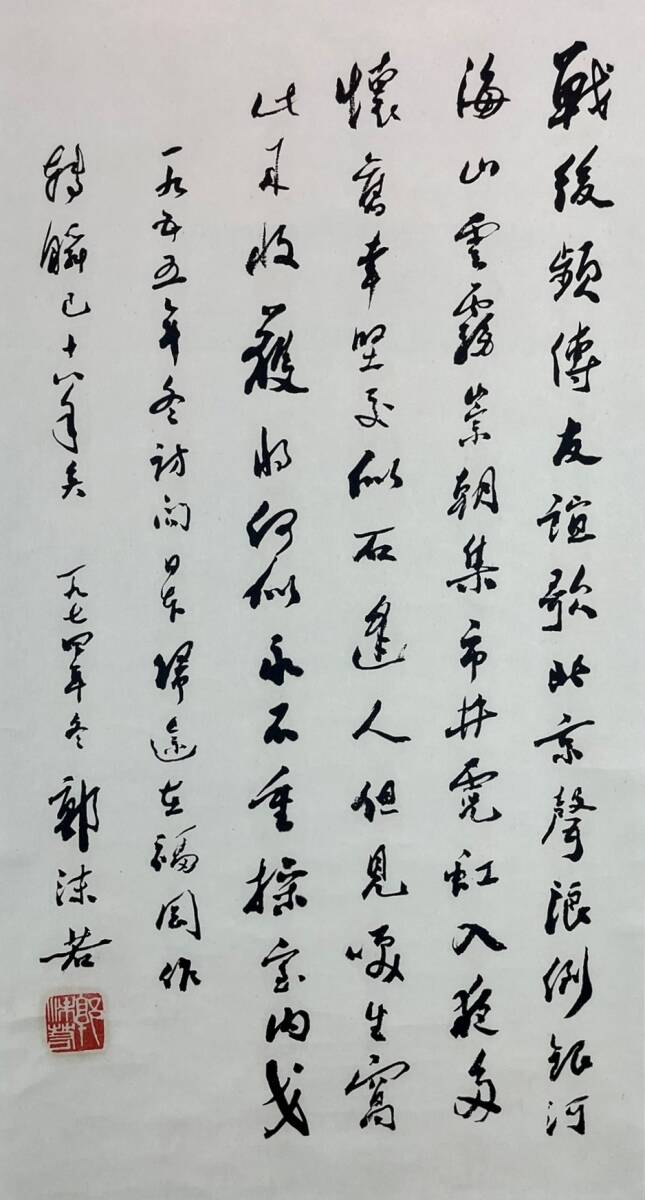 戰後頻傳友誼歌北京聲浪倒銀河
海山雲霧崇朝集市井霓虹入夜多
懷舊幸堅交似石逢人但見咲生窩
此來收穫將何似永不重操室內戈
一九五五年冬訪問日本歸途在福岡作
轉瞬已十八年矣 一九七四年冬 郭沫若
郭沫若